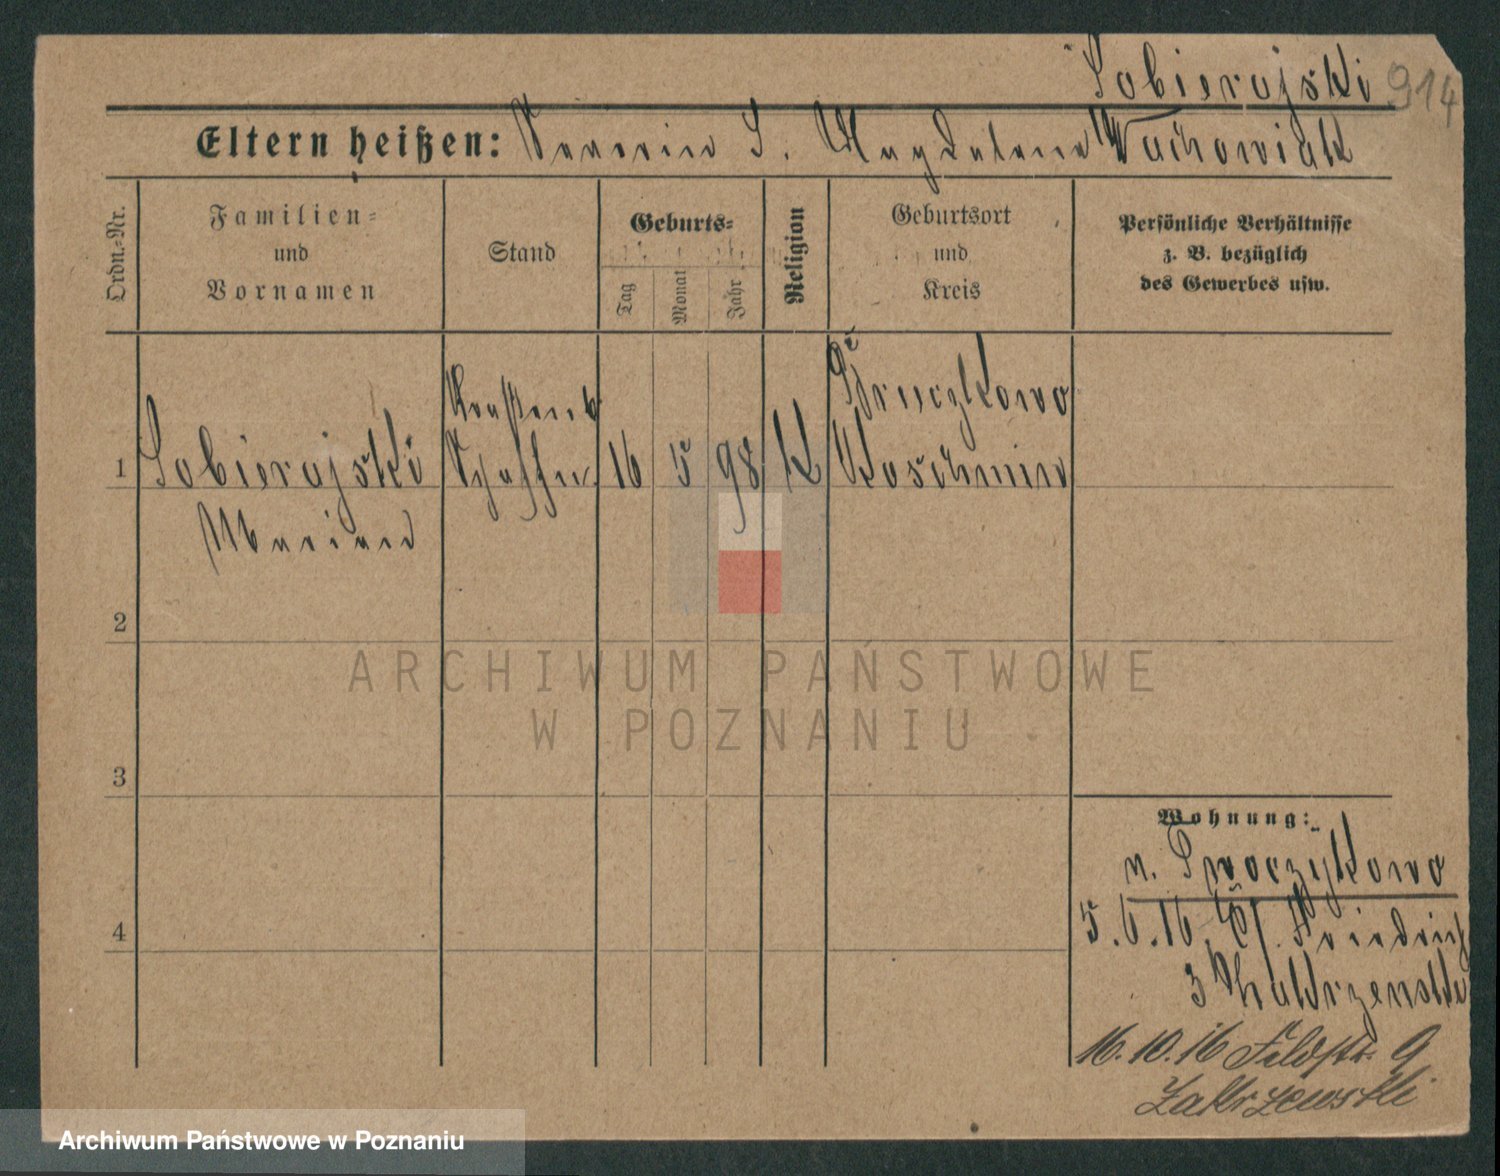 Sobierajski 914
Eltern heißen: Severin S. Magdalena Wachowiak
Ordn.-Nr.
Familien-
und
Vornamen
Stand
Geburts-
Tag
Monat
Jahr
Religion
Geburtsort
und
Kreis
Persönliche Verhältnisse
z. B. bezüglich
des Gewerbes usw.
1
Sobierajski
Marian
Schaffn.
16
5
98
K
Koschmin
2
3
4
ARCHIWUM PAŃSTWOWE
W POZNANIU
Wohnung:
n.
5.6.16. Friedrich
3
16.10.16 Feldstr. 9
Zakrzewski
Archiwum Państwowe w Poznaniu